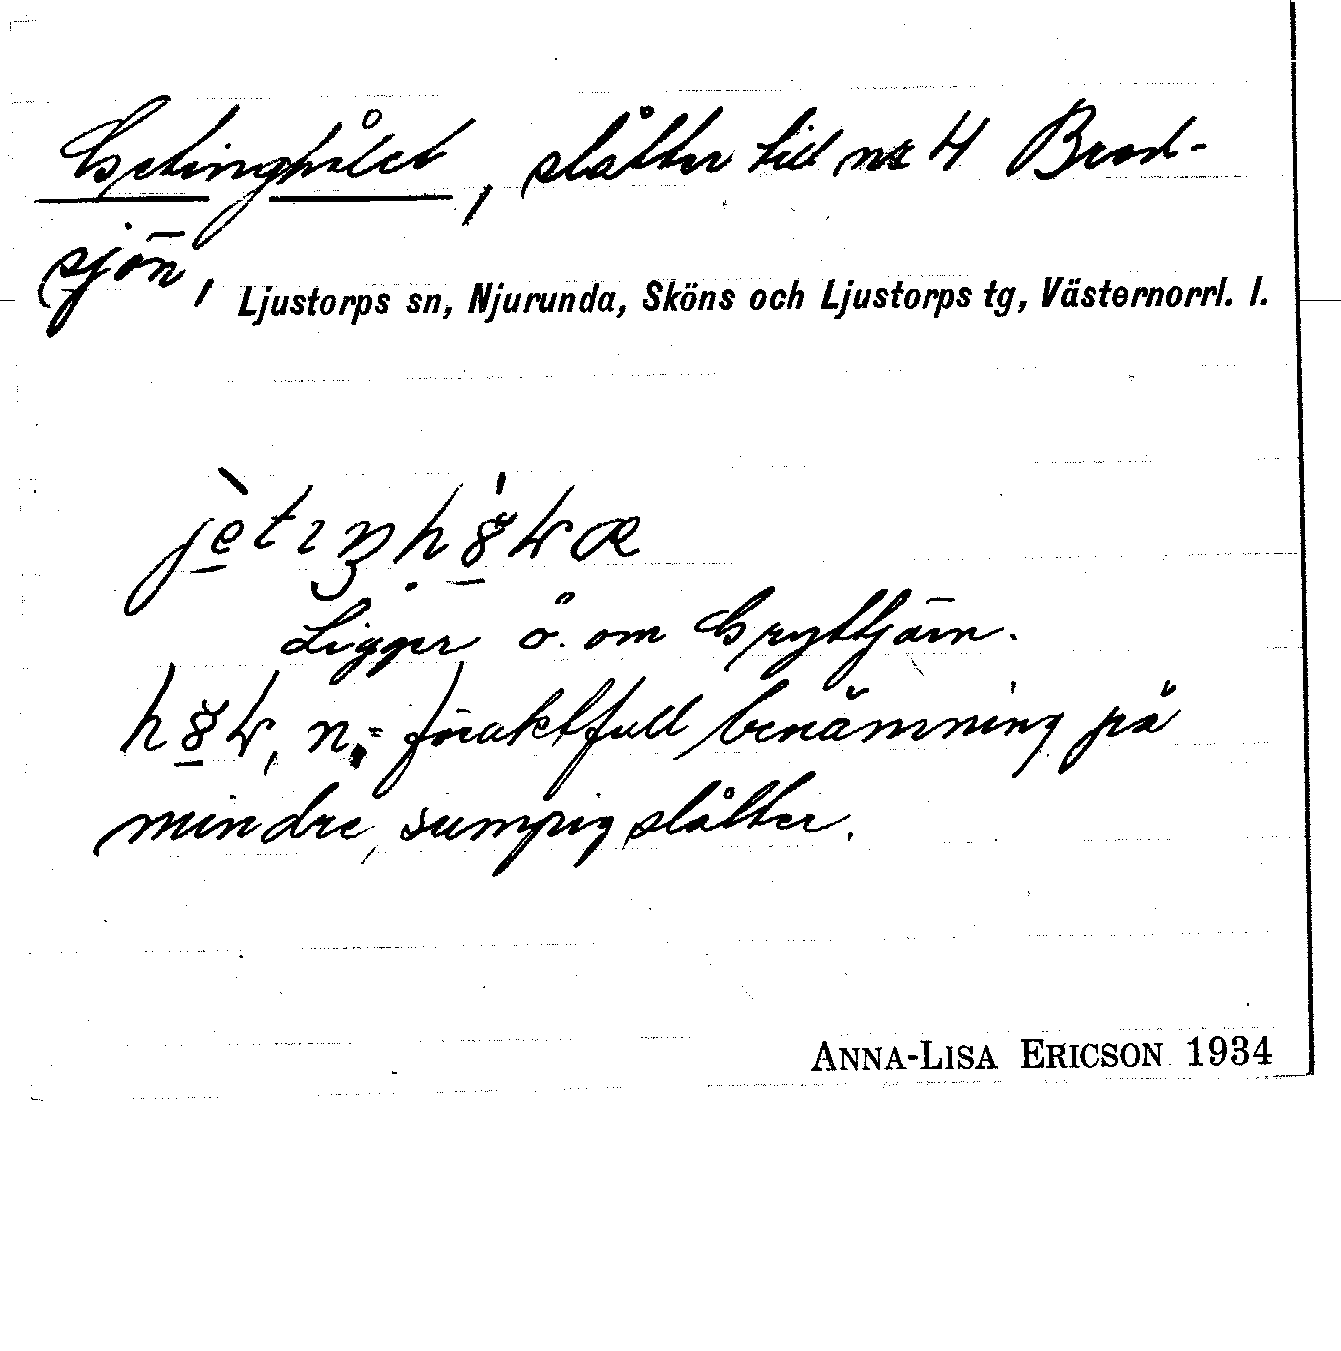 Getinghålet, slåtter till nr 4 Bred-
sjön, Ljustorps sn, Njurunda, Sköns och Ljustorps tg, Västernorrl. l.
Ligger ö. om Gryttjärn.
n. = föraktfull benämning på
mindre, sumpig slåtter.
ANNA-LISA ERICSON 1934